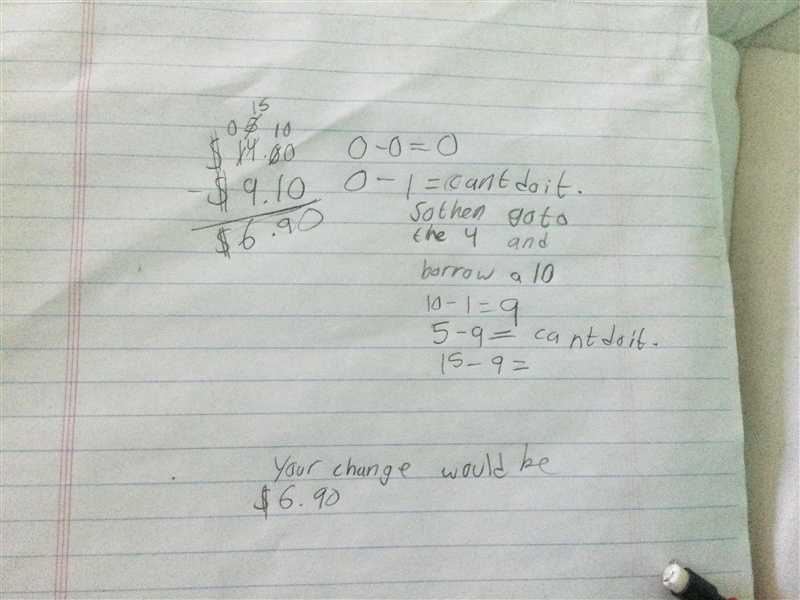 15
0 5 10
$ 14.00
- $ 9.10
$6.90
0-0=0
0-1=cant do it.
So then go to
the 4 and
borrow a 10
10-1=9
5-9= cant do it.
15-9=
Your change would be
$6.90